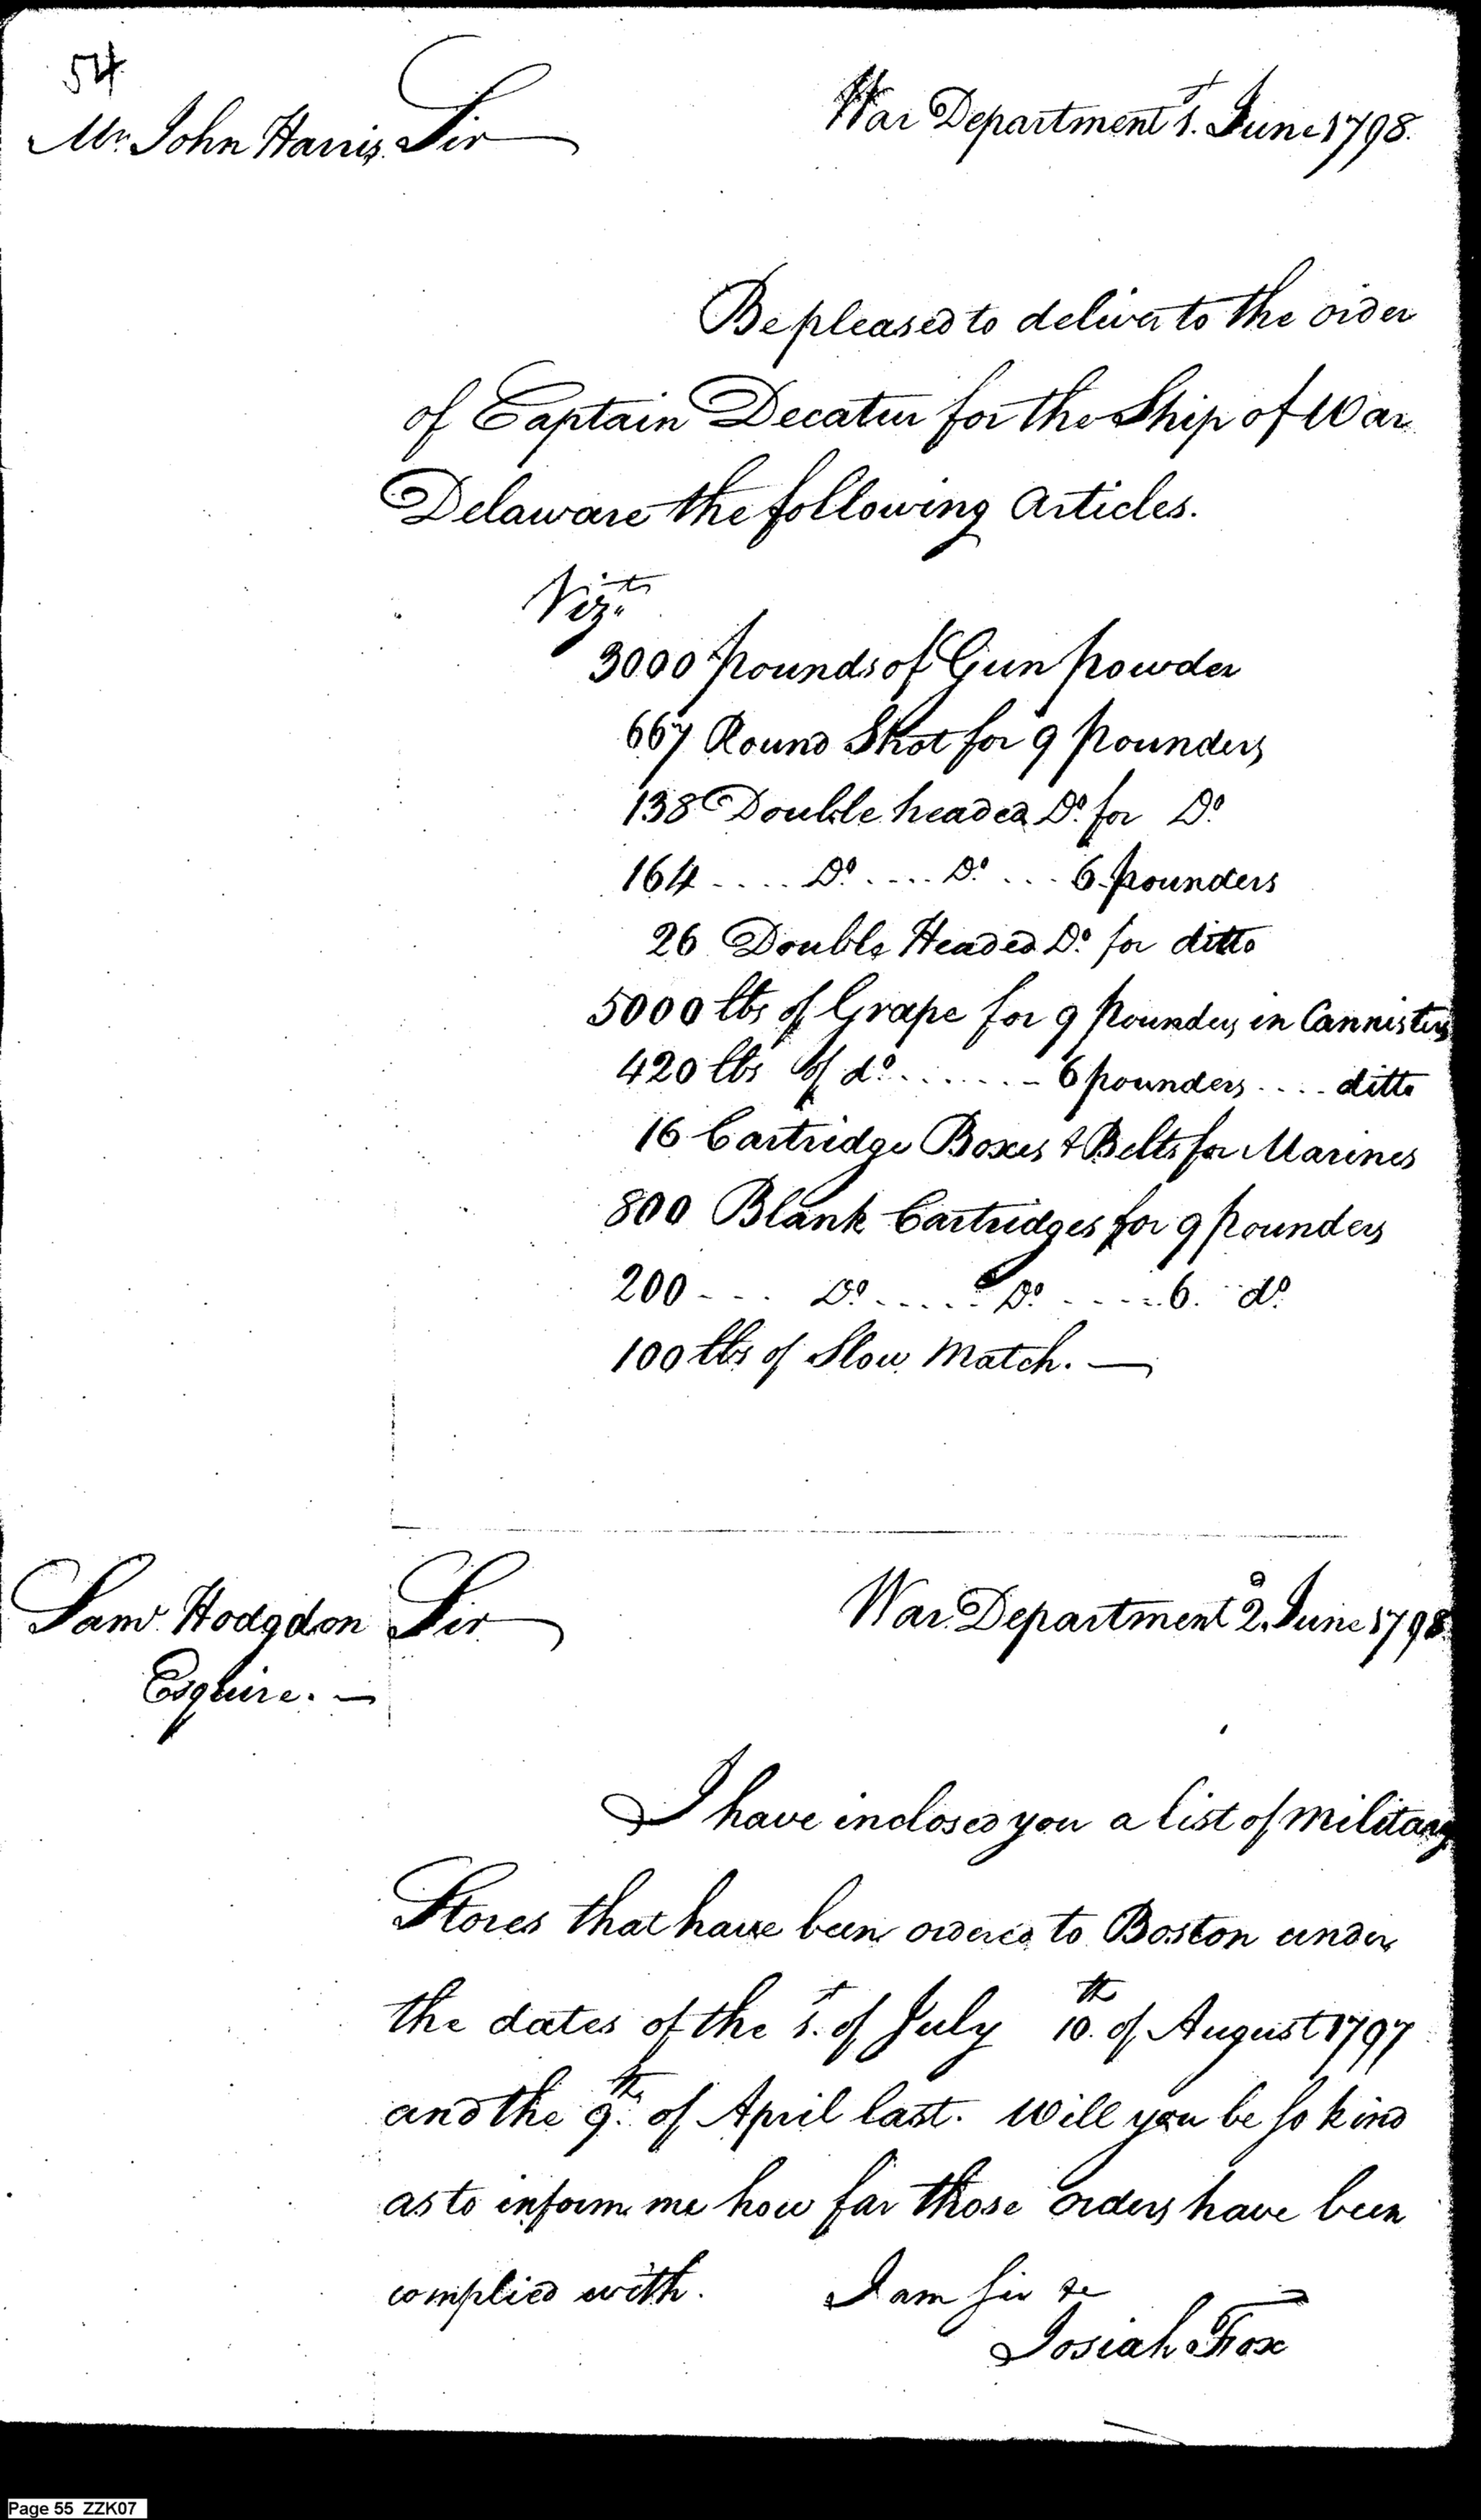 54
Mr. John Harris. Sir War Department 1st. June 1798.
Be pleased to deliver to the order
of Captain Decatur for the Ship of War
Delaware the following articles.
Vizt.
3000 pounds of Gun powder
667 Round Shot for 9 pounders
138 Double headed Do. for Do.
164 .... Do. .... Do. ... 6 pounders
26 Double Headed Do. for ditto
5000 lbs of Grape for 9 pounders in Cannisters
420 lbs of do. ....... 6 pounders .... ditto
16 Cartridge Boxes & Belts for Marines
800 Blank Cartridges for 9 pounders
200 --- Do. ..... Do. ----- 6. do.
100 lbs of Slow Match. —
Saml. Hodgdon Sir War Department 2d. June 1798.
Esquire. —
I have inclosed you a list of military
Stores that have been ordered to Boston under
the dates of the 1st. of July 10th. of August 1797
and the 9th. of April last. Will you be so kind
as to inform me how far those orders have been
complied with. I am Sir &c
Josiah Fox
Page 55 ZZK07